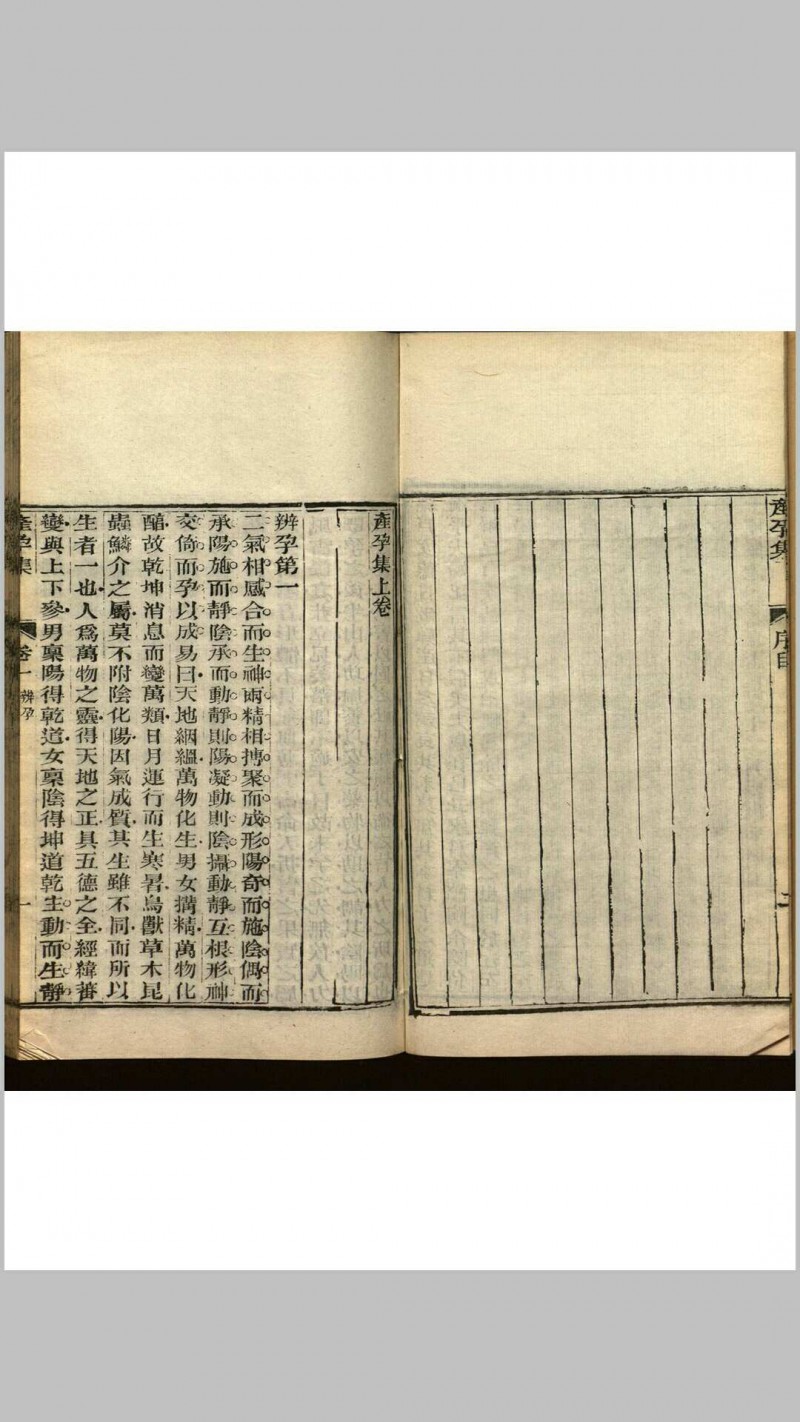 產孕集
序目
二
產孕集上卷
辨孕第一
二氣相感合而生神兩精相摶聚而成形陽奇而施陰偶而
承陽施而靜陰承而動靜則陽凝動則陰攝動靜互根形神
交倚而孕以成易曰天地絪縕萬物化生男女搆精萬物化
醕故乾坤消息而變萬類日月運行而生寒暑鳥獸草木昆
蟲鱗介之屬莫不附陰化陽因氣成質其生雖不同而所以
生者一也人爲萬物之靈得天地之正具五德之全經緯蕃
變與上下參男稟陽得乾道女稟陰得坤道乾主動而生靜
產孕集
卷一
辨孕
一